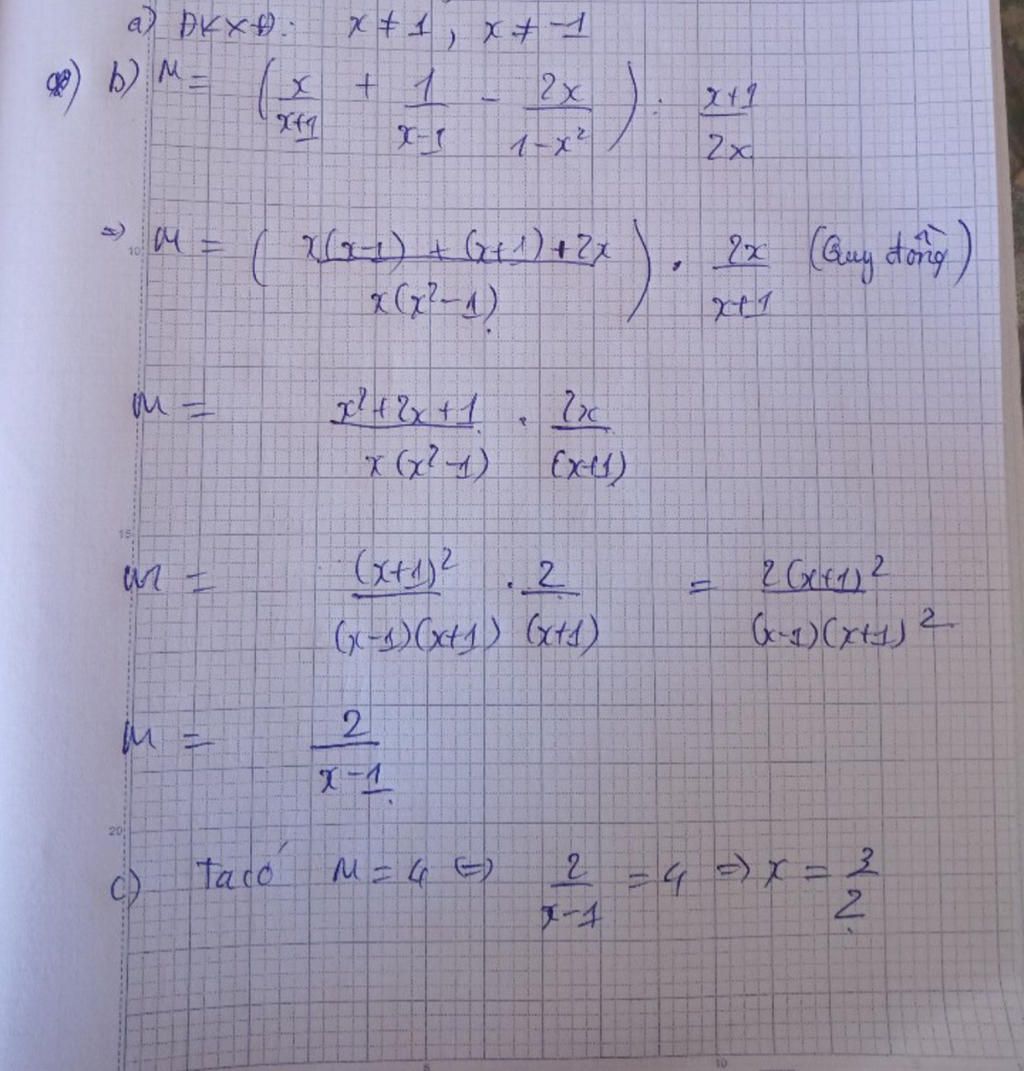 a) ĐKXĐ: x ≠ 1, x ≠ -1
b) M = (x/(x+1) + 1/(x-1) - 2x/(1-x²)) : (x+1)/2x
=> M = ((x(x-1) + (x+1) + 2x)/(x(x²-1))) . 2x/(x+1) (Quy đồng)
M = (x²+2x+1)/(x(x²-1)) . 2x/(x+1)
M = (x+1)²/((x-1)(x+1)) . 2/(x+1) = 2(x+1)²/((x-1)(x+1)²)
M = 2/(x-1)
c) Ta có M = 4 <=> 2/(x-1) = 4 => x = 3/2